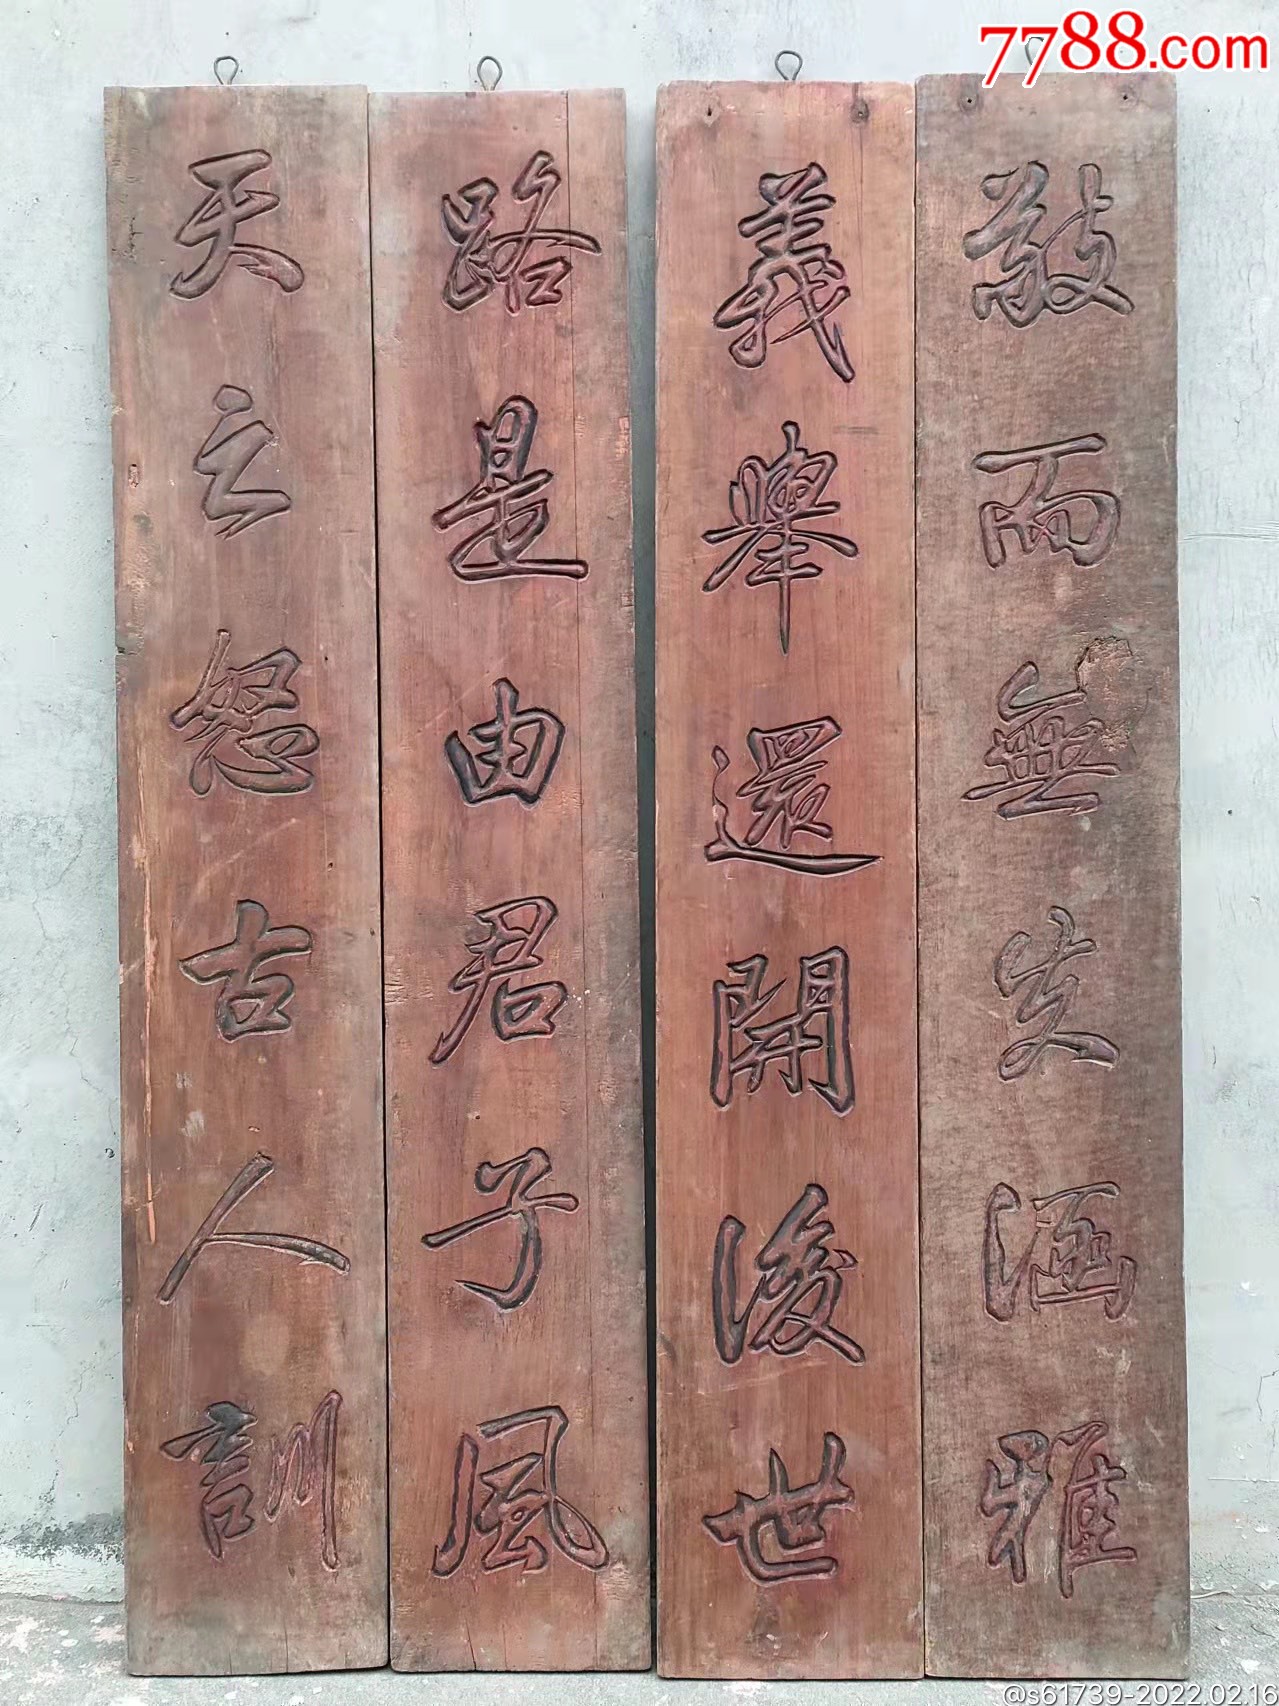 7788.com
敬而無失涵雅
義舉還開後世
路是由君子風
天之怒古人訓
@s61739-2022.02.16